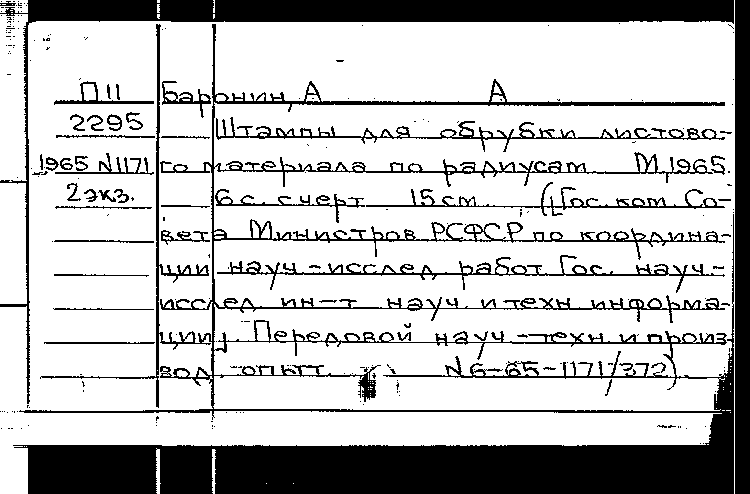 П 11 Баронин, А А
2295 Штампы для обрубки листово-
1965 N1171 го материала по радиусам М, 1965.
2 экз. 6 с. с черт 15 см. ([Гос. ком. Со-
вета Министров РСФСР по координа-
ции науч-исслед работ Гос. науч.-
исслед ин-т науч. и техн информа-
ции]. Передовой науч-техн и произ-
вод. опыт. N 6-65-1171/372).